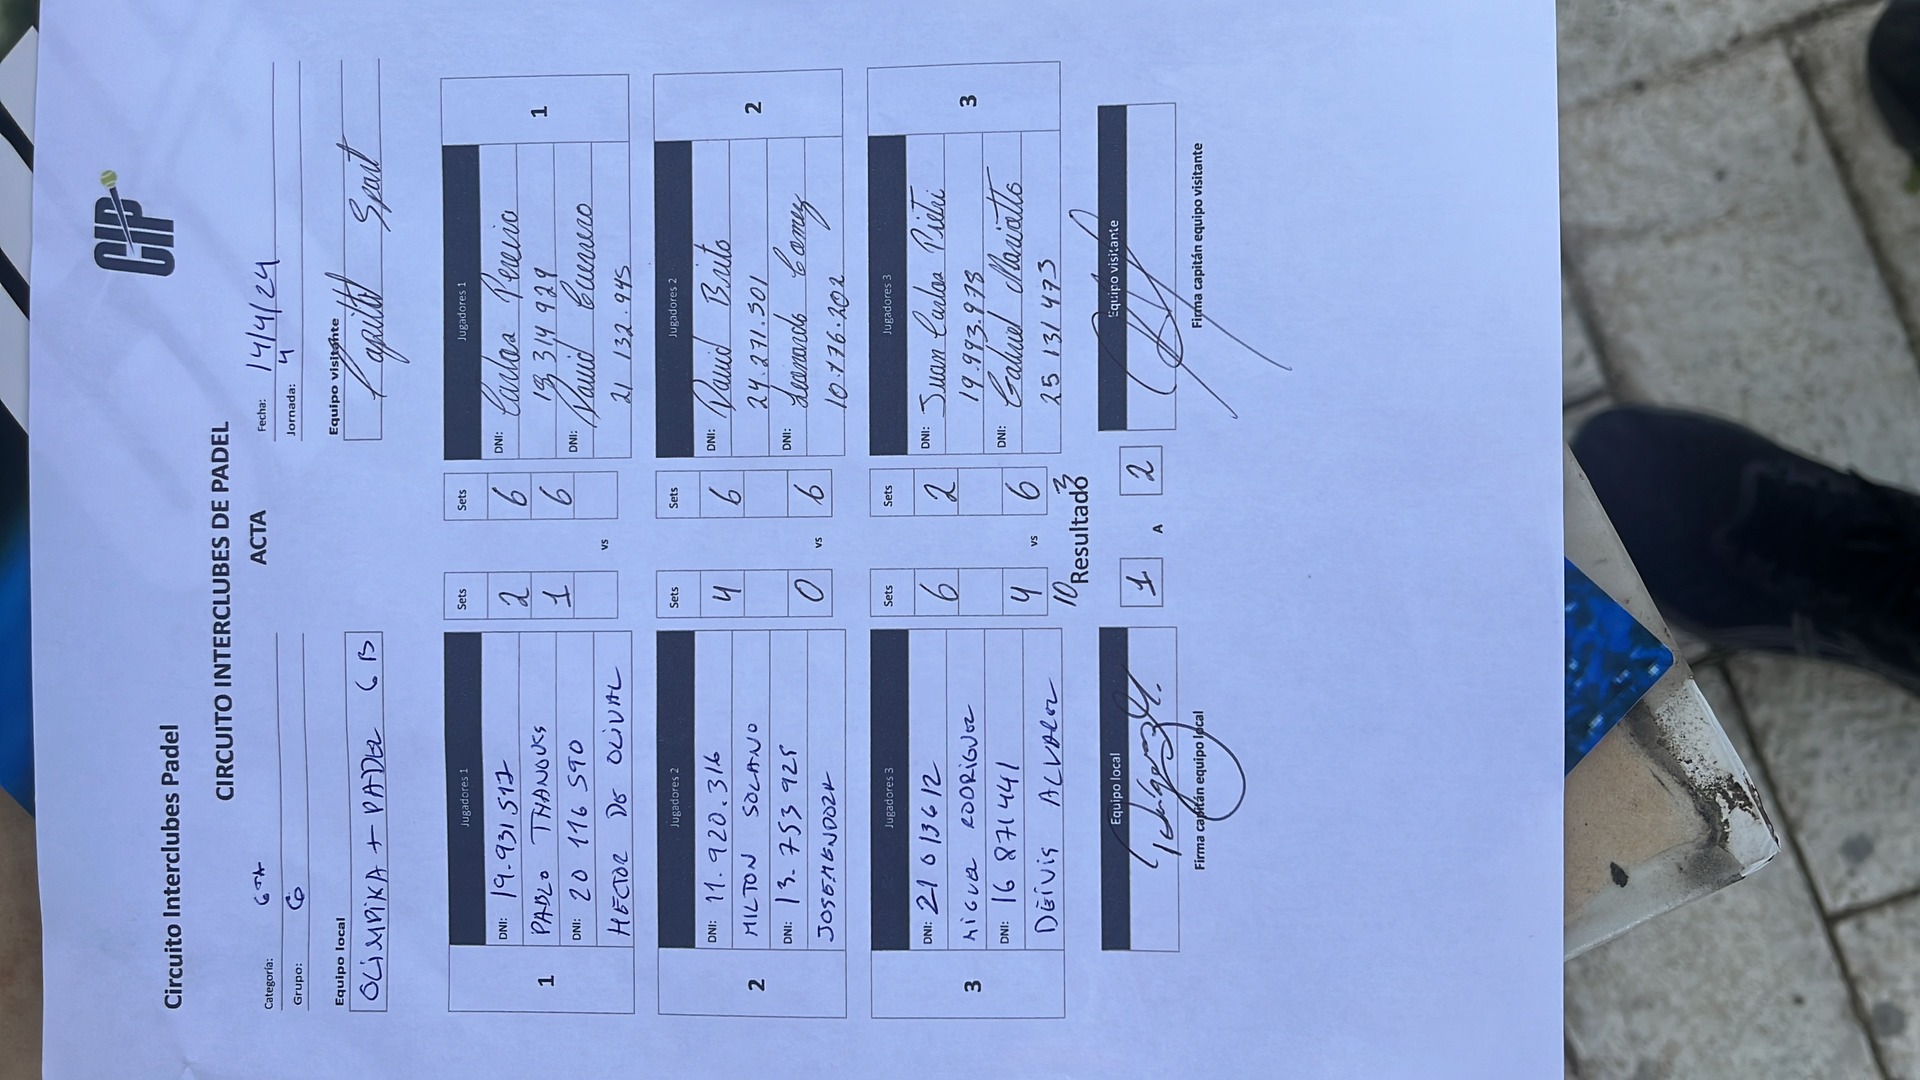 CIP
Circuito Interclubes Padel
CIRCUITO INTERCLUBES DE PADEL
ACTA
Categoría: 6TA
Fecha: 14/4/24
Grupo: G
Jornada: 4
Equipo local
Equipo visitante
OLIMPIKA + PADEL 6 B
Sport
Jugadores 1
Sets
Sets
Jugadores 1
1
DNI: 19.931.517
2
6
Carlos Pereira
1
PABLO
1
6
DNI: 19 314 929
DNI: 20 116 590
David Guerrero
HECTOR DE OLIVAL
vs
DNI: 21 132.945
Jugadores 2
Sets
Sets
Jugadores 2
2
DNI: 11.920.316
4
6
David Brito
2
MILTON SOLANO
DNI: 24.271.501
DNI: 13.753 925
0
6
Leonardo Gomez
JOSE MENDOZA
vs
10.176.202
Jugadores 3
Sets
Sets
Jugadores 3
3
DNI: 21 013612
6
2
Juan Carlos Pietri
3
MIGUEL RODRIGUEZ
DNI: 19.993.973
DNI: 16 871441
4
6
Gabriel Mariotto
DEIVIS ALVAREZ
vs
DNI: 25 131 473
10
3
Resultado
Equipo local
1
A
2
Equipo visitante
Firma capitán equipo local
Firma capitán equipo visitante